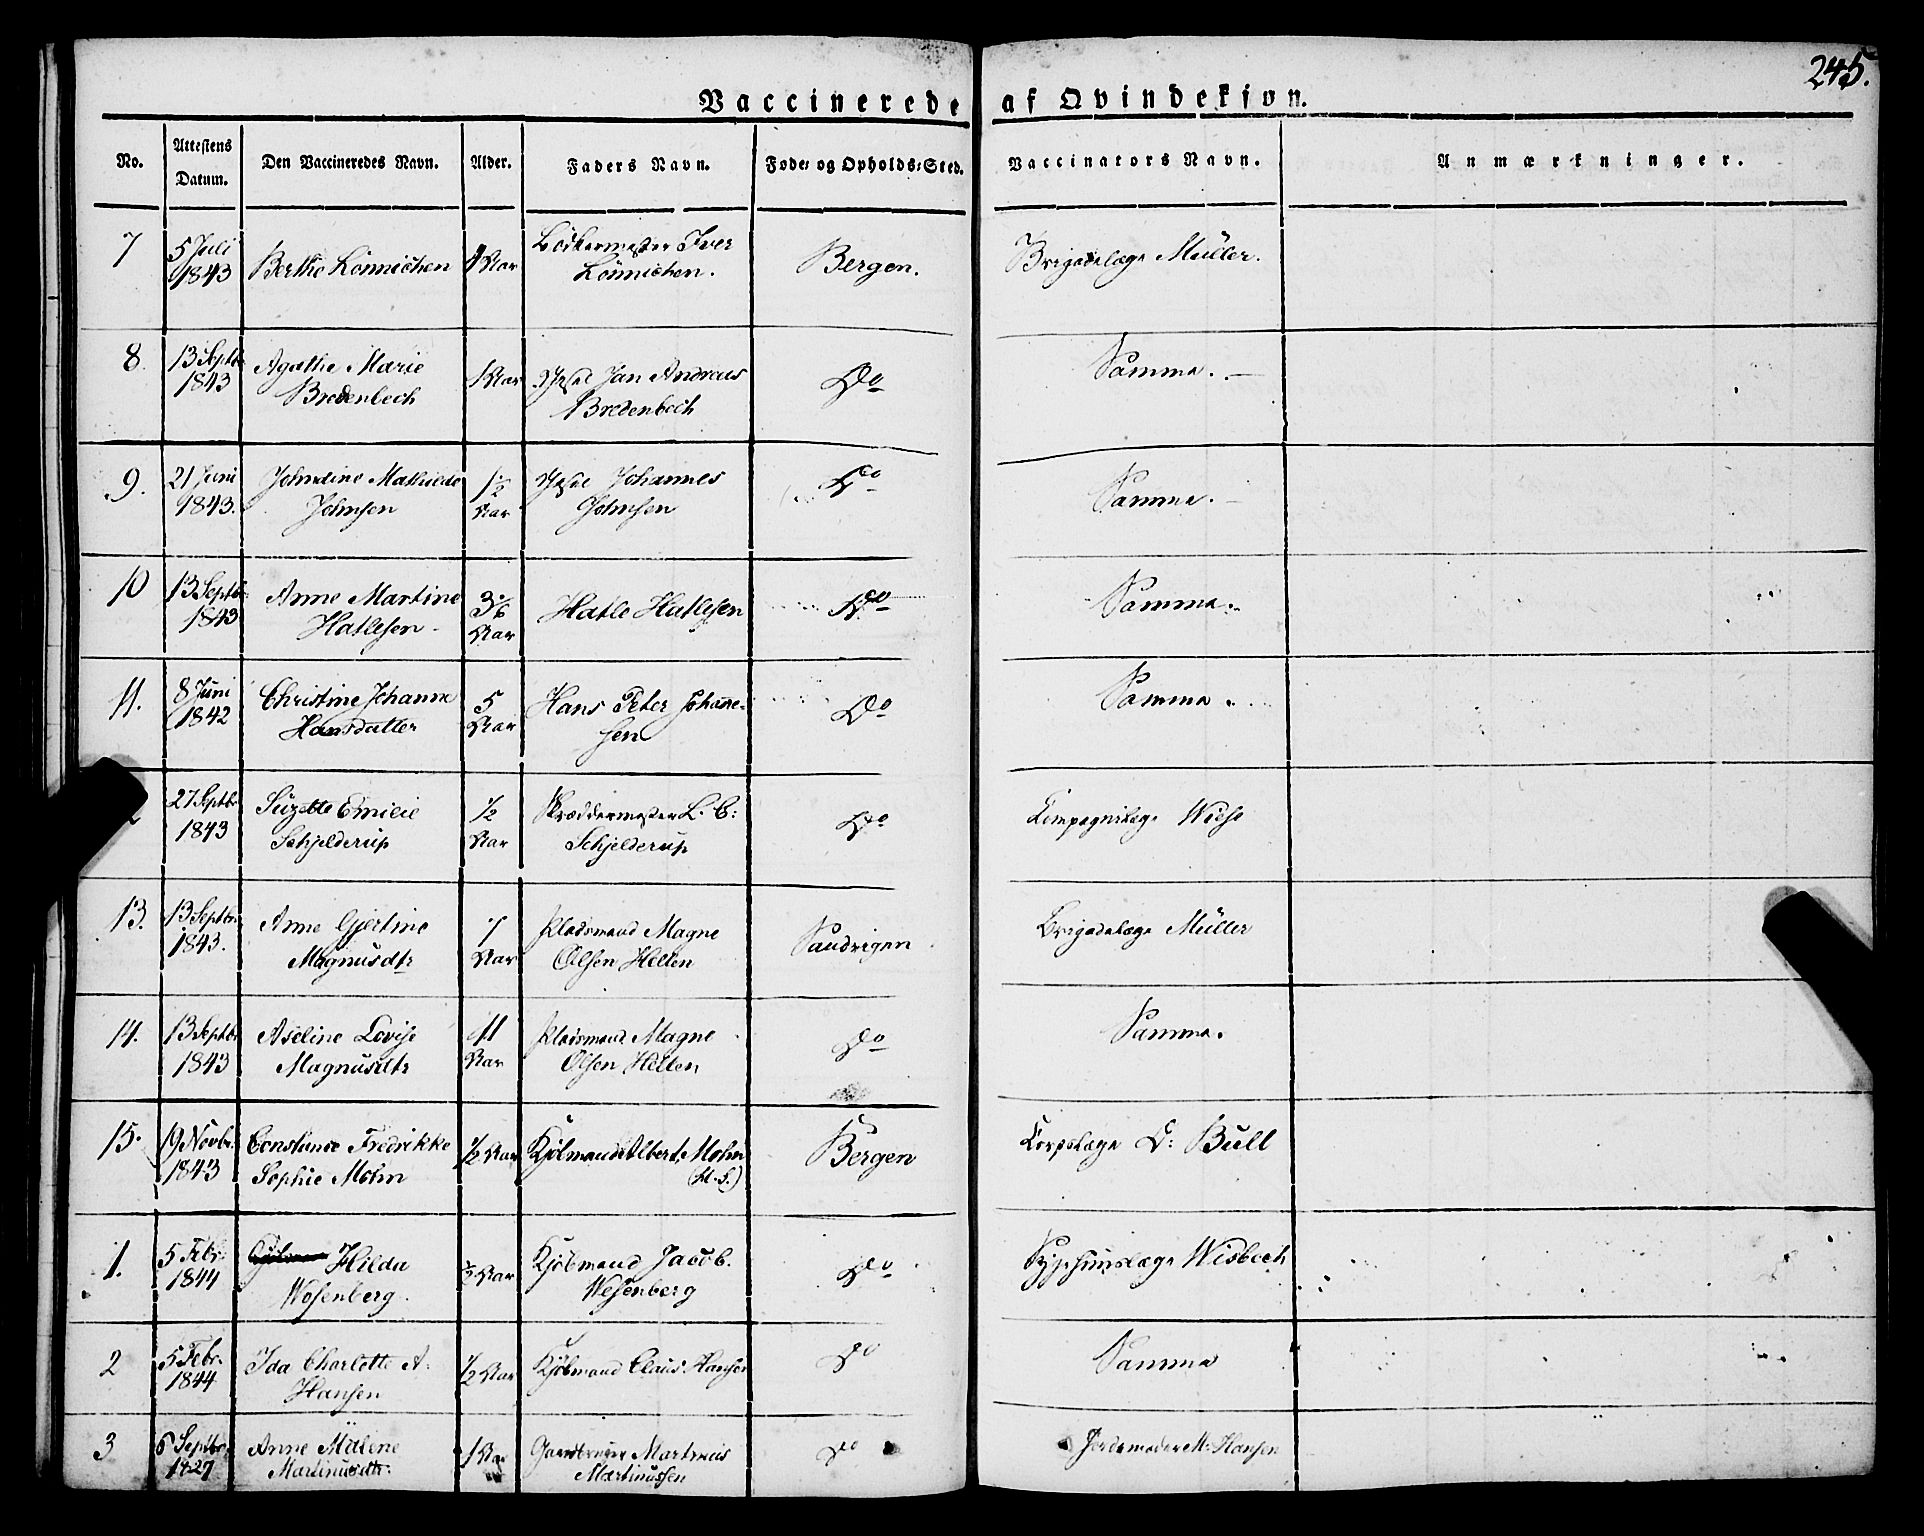 245.
Vaccinerede af Qvindekjøn.
No. Attestens Datum. Den Vaccineredes Navn. Alder. Faders Navn. Føde- og Opholds-Sted. Vaccinators Navn. Anmærkninger.
7 5 Juli Bødkermester Iver
1843 Berthe Lönnichen Aar Lönnichen. Bergen. Brigadelæge Müller.
8. 13 Septbr Agathe Marie 1 Aar Jan Andreas Do Samme.
1843 Bredenbech Bredenbech
9. 21 Juni Johndine Mathilde 1½ Johannes Do Samme.
1843. Johnsen Aar Johnsen
10 13 Septbr Anne Martine 3/6 Hatle Hatlesen Do Samme.
1843 Hatlesen Aar
11. 8 Juni Christine Johanne 5 Hans Peter Johanne- Do Samme.
1842 Hansdatter Aar sen
27 Septbr Suzette Emilie 1/2 Skræddermester L. C: Do Compagnilæge Wiese
1843 Schjelderup Aar Schjelderup
13. 13 Septbr Anne Gjertine 7 Pladsmand Magne Sandvigen Brigadelæge Müller
1843. Magnusdtr Aar Olsen Hellen
14. 13 Septbr Aseline Lovise 11 Pladsmand Magne Do Samme.
1843 Magnusdtr Aar Olsen Hellen
15. 19 Novbr Constance Fredrikke 1/2 Aar Kjöbmand Albert Mohn Bergen Corpslæge D: Bull
1843 Sophie Mohn
1. 5 Febr. Hilda 1/2 Aar Kjöbmand Jacob. Do Wisbech
1844 Wesenberg. Wesenberg
2 5 Febr. Ida Charlotte A. 1/2 Aar Kjöbmand Claus Hansen Do Samme
1844 Hansen
3 6 Septbr Anne Malene 1 Aar Martinus Do Jordemoder M. Hansen
1827 Martinusdtr. Martinussen